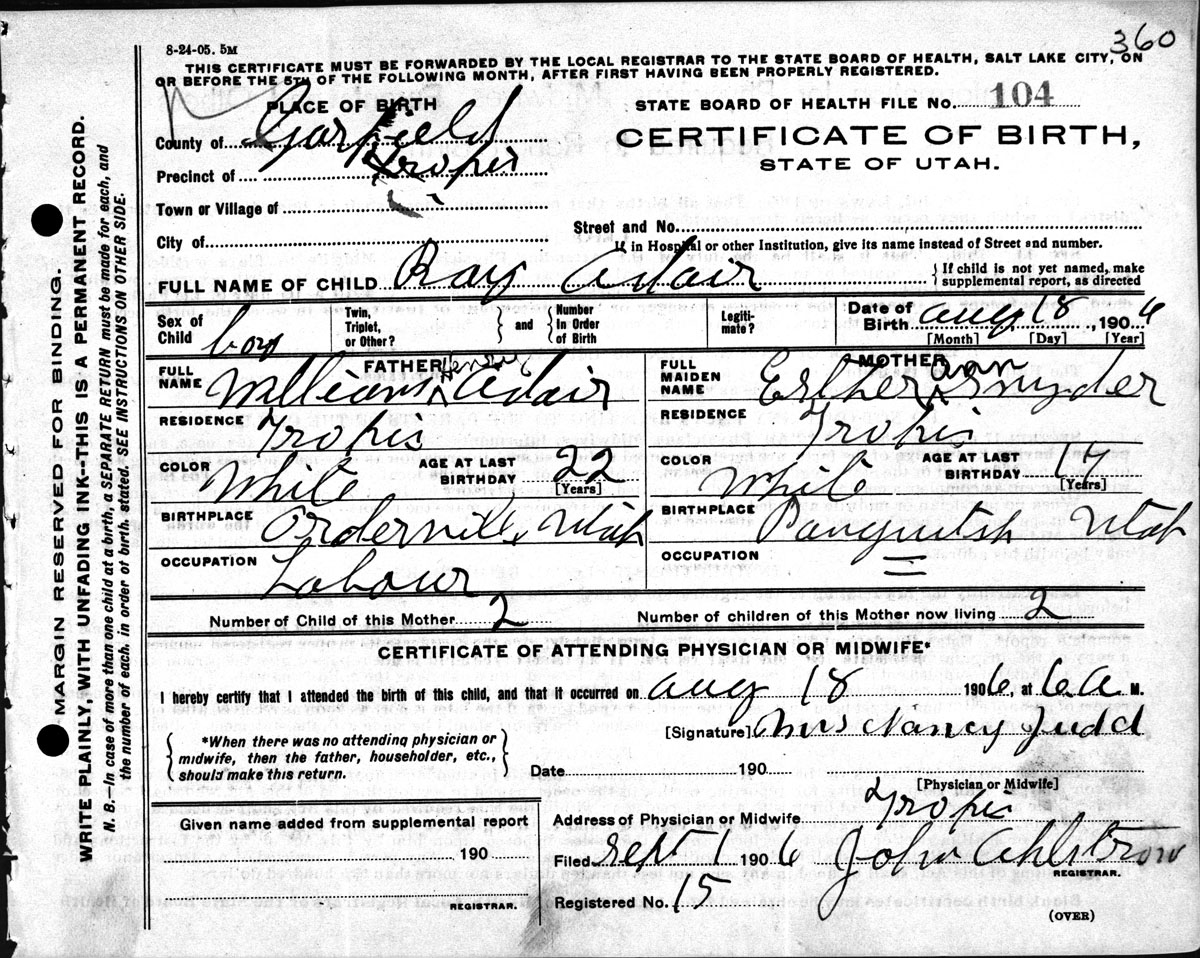 360
8-24-05. 5M
THIS CERTIFICATE MUST BE FORWARDED BY THE LOCAL REGISTRAR TO THE STATE BOARD OF HEALTH, SALT LAKE CITY, ON
OR BEFORE THE 5TH OF THE FOLLOWING MONTH, AFTER FIRST HAVING BEEN PROPERLY REGISTERED.
PLACE OF BIRTH
STATE BOARD OF HEALTH FILE NO. 104
County of Garfield
CERTIFICATE OF BIRTH,
STATE OF UTAH.
Precinct of Tropic
Town or Village of
Street and No.
City of
If in Hospital or other Institution, give its name instead of Street and number.
FULL NAME OF CHILD Ray Adair
{ If child is not yet named, make
supplemental report, as directed
Sex of Child boy
Twin, Triplet, or Other? } and { Number in Order of Birth
Legitimate?
Date of Birth Aug 18, 1906
[Month] [Day] [Year]
FATHER
FULL NAME William Henry Adair
RESIDENCE Tropic
COLOR White
AGE AT LAST BIRTHDAY 22
[Years]
BIRTHPLACE Orderville, Utah
OCCUPATION Labour
MOTHER
FULL MAIDEN NAME Esther Ann Snyder
RESIDENCE Tropic
COLOR White
AGE AT LAST BIRTHDAY 17
[Years]
BIRTHPLACE Panguitch Utah
OCCUPATION =
Number of Child of this Mother 2
Number of children of this Mother now living 2
CERTIFICATE OF ATTENDING PHYSICIAN OR MIDWIFE*
I hereby certify that I attended the birth of this child, and that it occurred on Aug 18 1906, at 6 A M.
{ *When there was no attending physician or
midwife, then the father, householder, etc.,
should make this return. }
[Signature] Mrs Nancy Judd
Date 190
[Physician or Midwife]
Given name added from supplemental report
190
REGISTRAR.
Address of Physician or Midwife Tropic
Filed Sept 1 1906 John Ahlstrom
REGISTRAR.
Registered No. 15
(OVER)
MARGIN RESERVED FOR BINDING.
WRITE PLAINLY, WITH UNFADING INK--THIS IS A PERMANENT RECORD.
N. B.—In case of more than one child at a birth, a SEPARATE RETURN must be made for each, and
the number of each, in order of birth, stated. SEE INSTRUCTIONS ON OTHER SIDE.